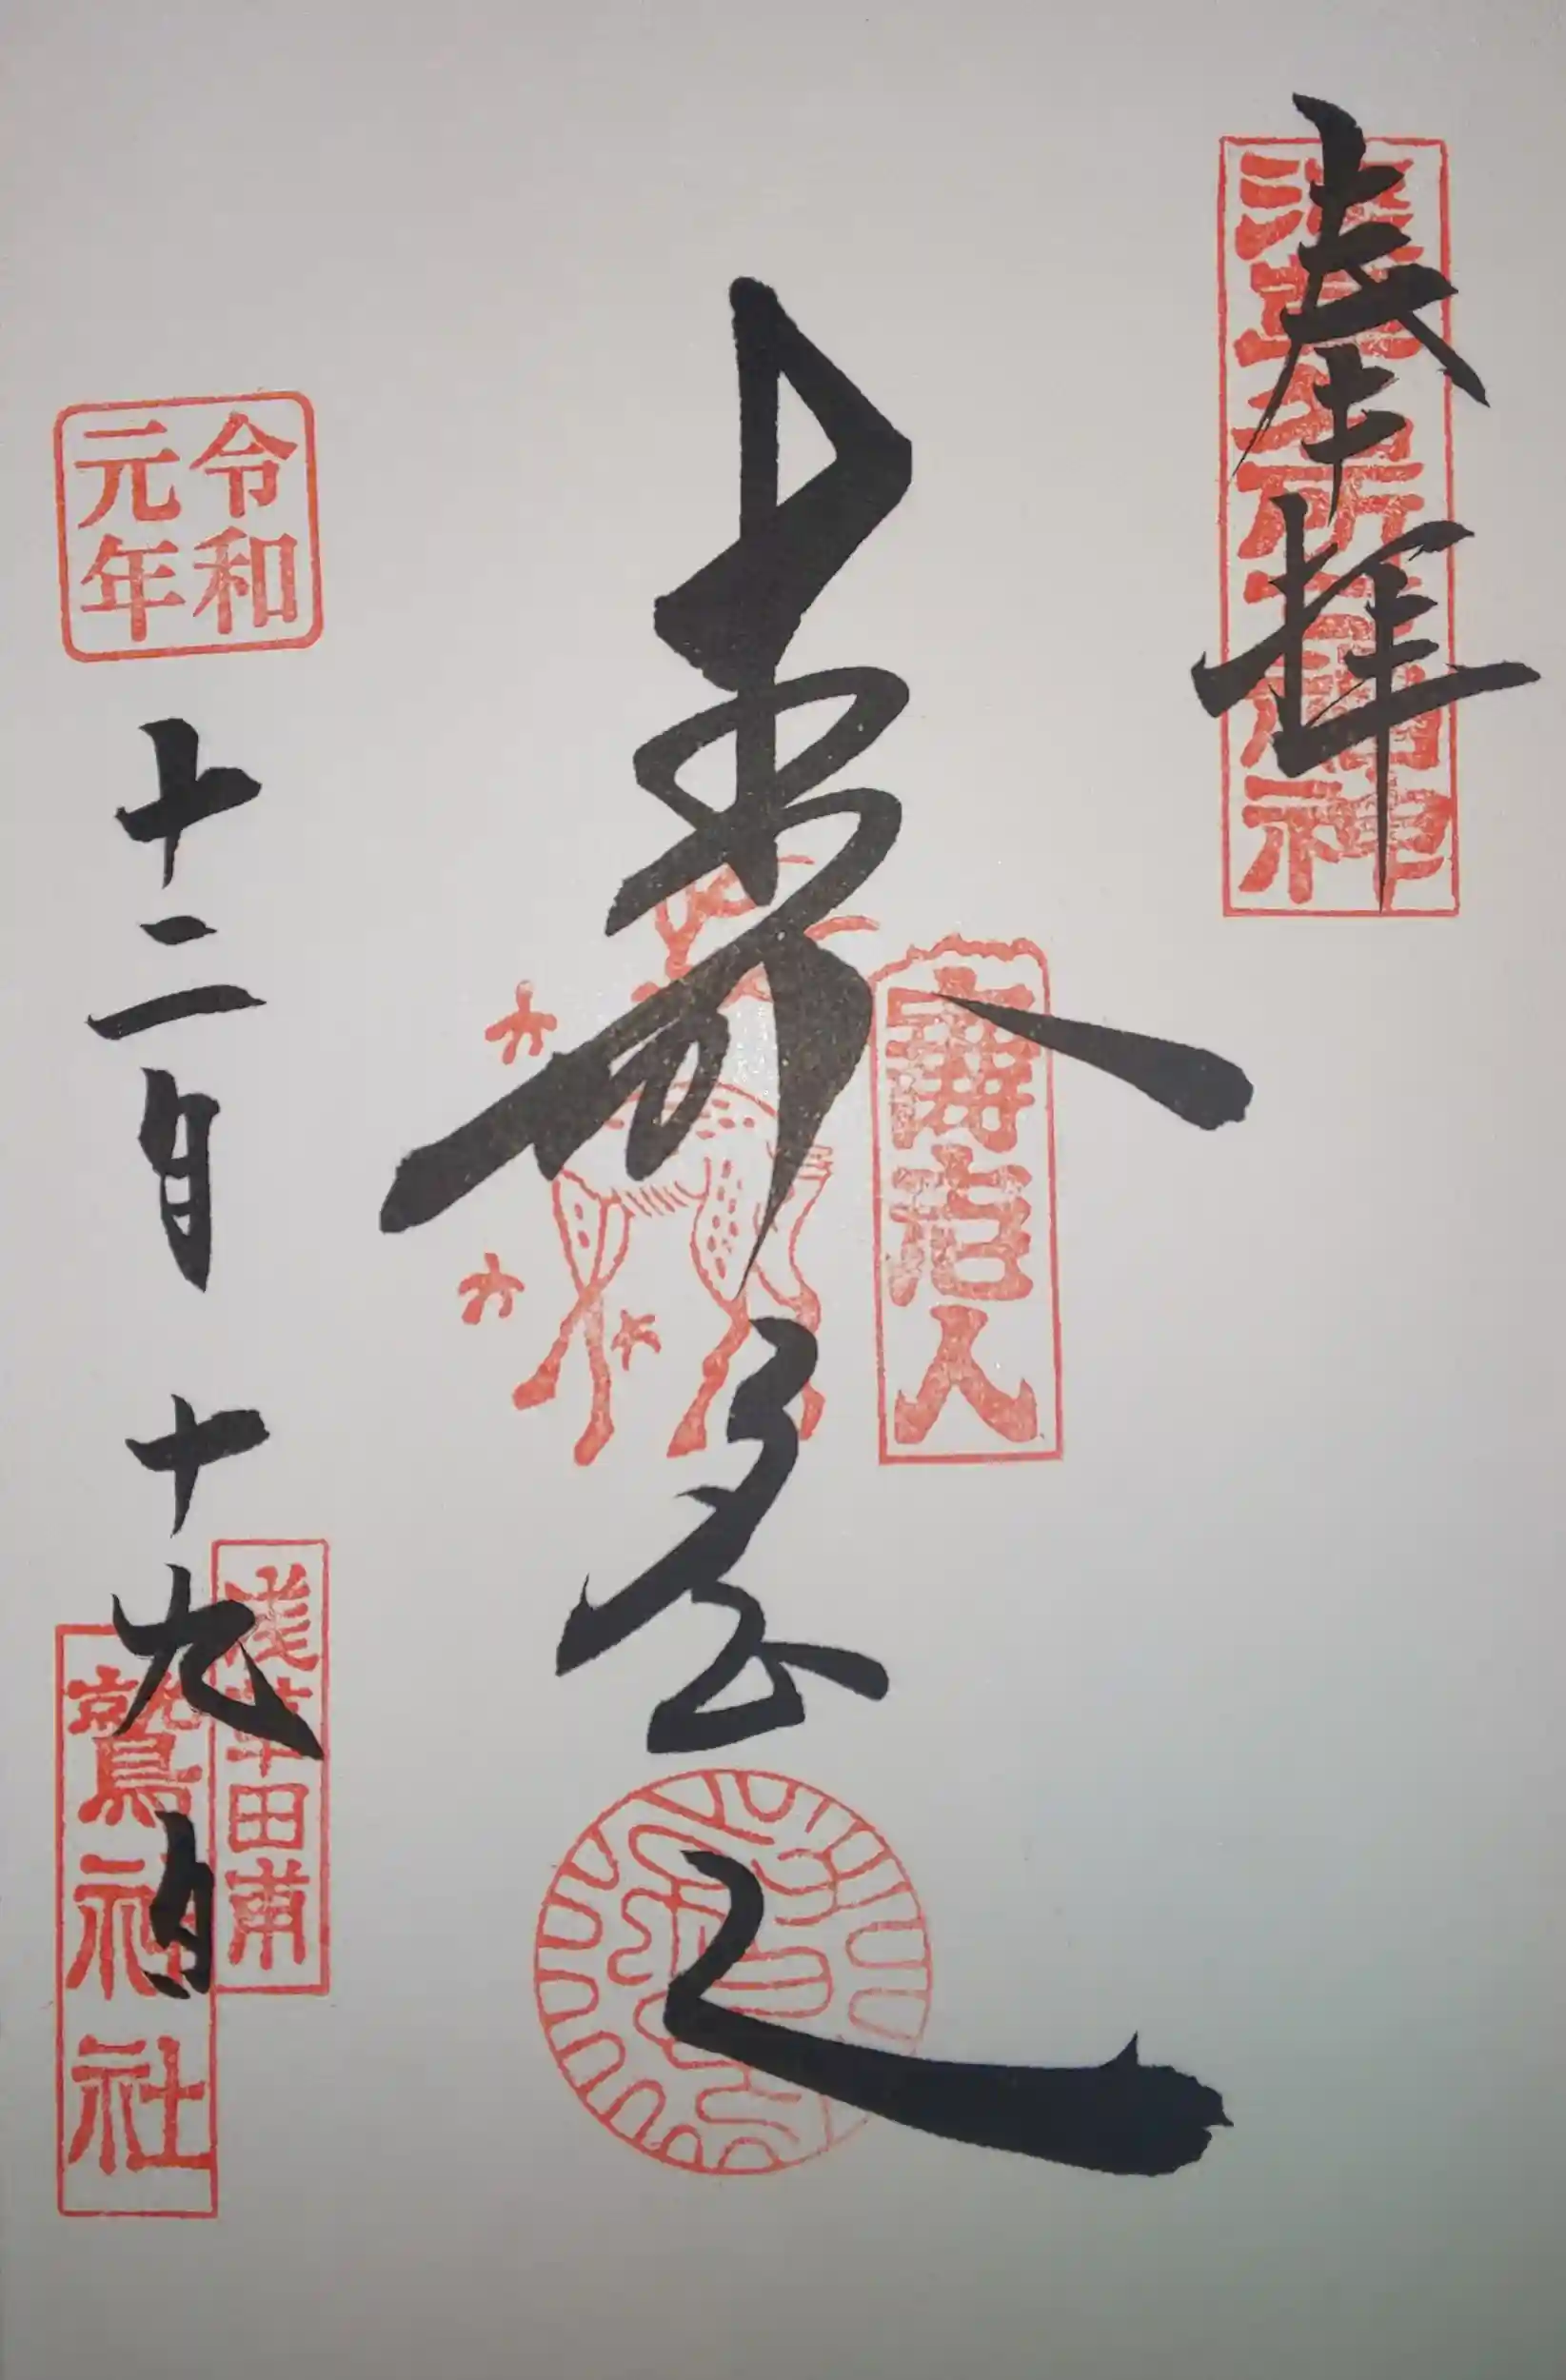 奉拝
浅草名所七福神
壽老人
寿老人
令和
元年
十二月十九日
浅草田甫
鷲神社